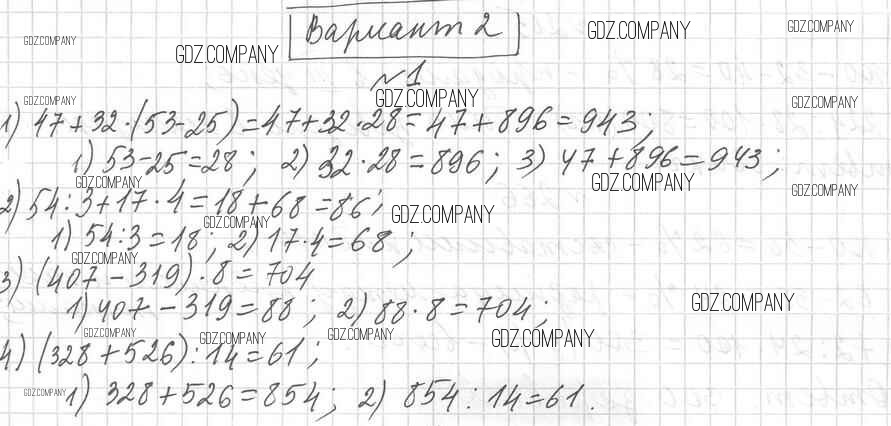 Вариант 2
GDZ.COMPANY GDZ.COMPANY GDZ.COMPANY GDZ.COMPANY
№1
GDZ.COMPANY GDZ.COMPANY GDZ.COMPANY
1) 47+32·(53-25)=47+32·28=47+896=943;
1) 53-25=28; 2) 32·28=896; 3) 47+896=943;
GDZ.COMPANY GDZ.COMPANY GDZ.COMPANY
2) 54:3+17·4=18+68=86;
GDZ.COMPANY GDZ.COMPANY
1) 54:3=18; 2) 17·4=68;
GDZ.COMPANY
3) (407-319)·8=704
1) 407-319=88; 2) 88·8=704;
GDZ.COMPANY
GDZ.COMPANY GDZ.COMPANY GDZ.COMPANY GDZ.COMPANY
4) (328+526):14=61;
1) 328+526=854; 2) 854:14=61.
GDZ.COMPANY